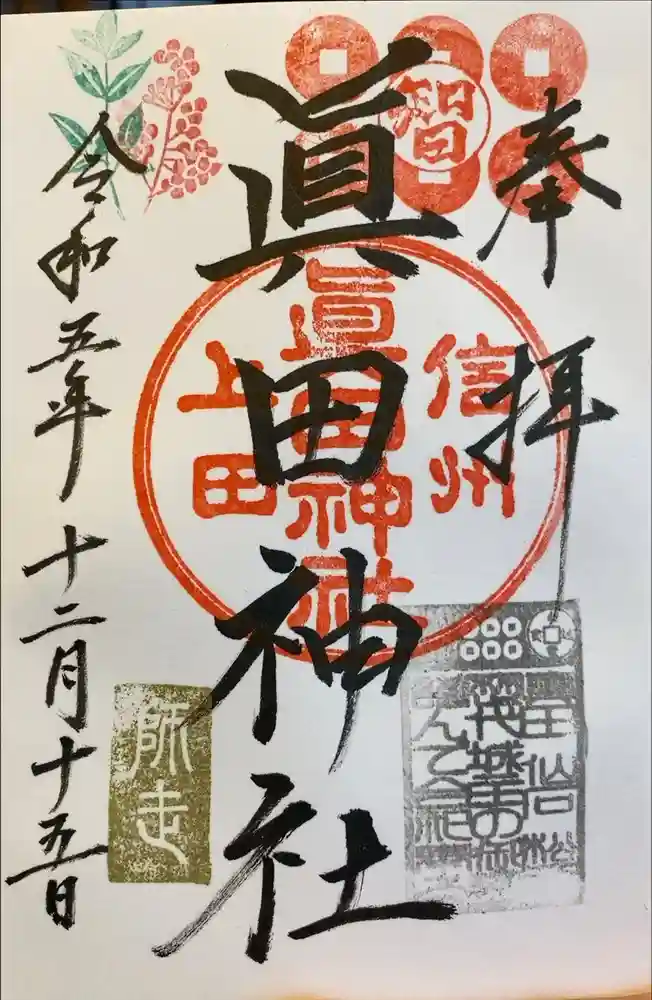 奉拝
智
眞田神社
信州
眞田神社
上田
令和五年十二月十五日
師走